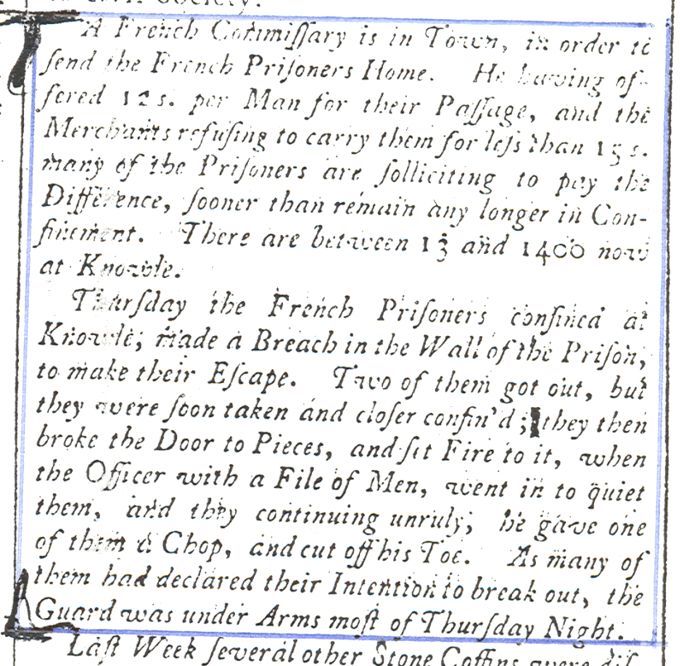 A French Commiſſary is in Town, in order to
ſend the French Priſoners Home. He having of-
fered 12 s. per Man for their Paſſage, and the
Merchants refuſing to carry them for leſs than 15 s.
many of the Priſoners are ſolliciting to pay the
Difference, ſooner than remain any longer in Con-
finement. There are between 13 and 1400 now
at Knowle.
Thurſday the French Priſoners confined at
Knowle, made a Breach in the Wall of the Priſon,
to make their Eſcape. Two of them got out, but
they were ſoon taken and cloſer confin'd; they then
broke the Door to Pieces, and ſet Fire to it, when
the Officer with a File of Men, went in to quiet
them, and they continuing unruly, he gave one
of them a Chop, and cut off his Toe. As many of
them had declared their Intention to break out, the
Guard was under Arms moſt of Thurſday Night.
Laſt Week ſeveral other Stone Coffins were diſ